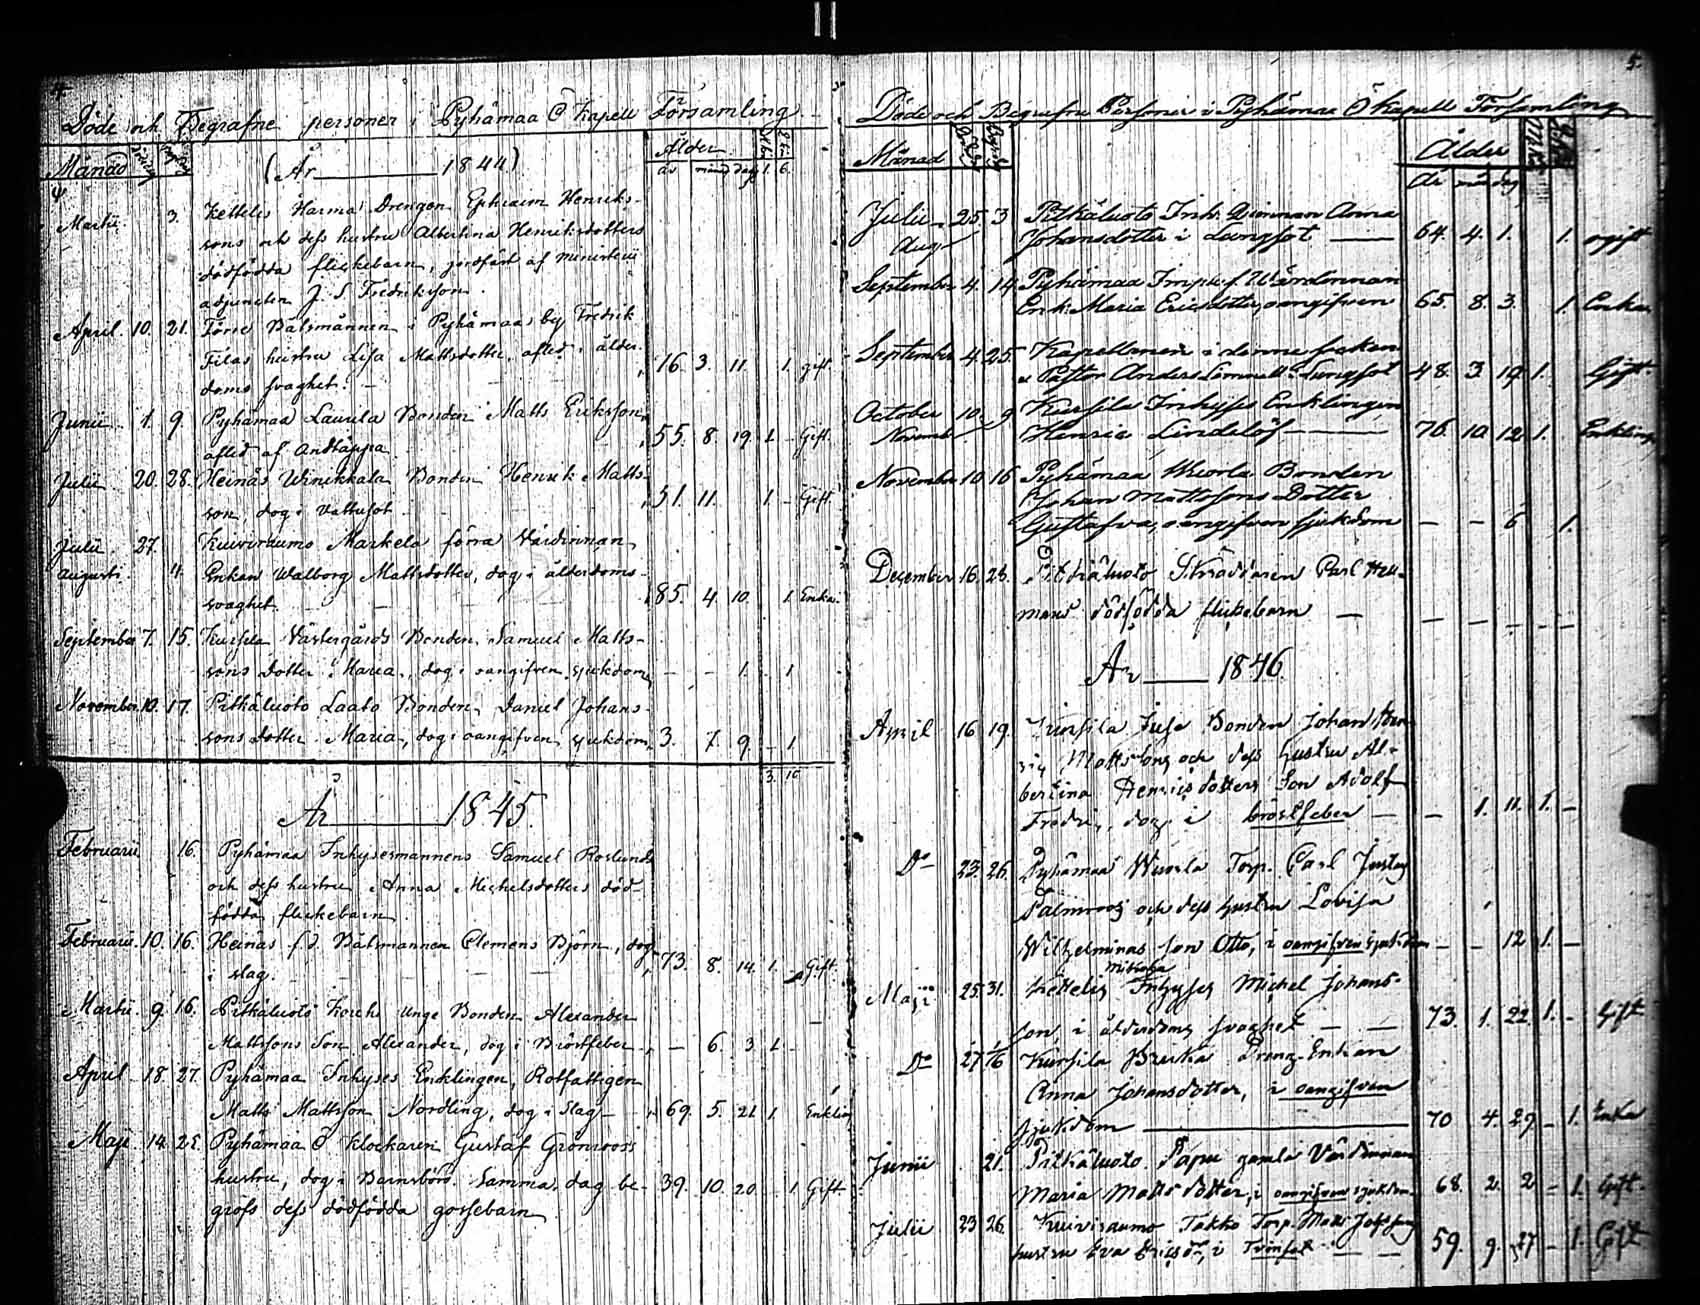 4.
Döde och Begrafne personer i Pyhämaa Ö Kapell Församling
Månad
Ålder
(År 1844)
år månad dag 1. 6.
Martii. 3. Kettelis Harma Drengen Ephraim Henriks-
sons och dess hustru Albertina Henriksdotters
dödfödda flickebarn, jordfäst af Ministerii
adjuncten J. S. Fredrikson.
April. 10. 21. Förre Båtsmannen i Pyhämaa by Fredrik
Filas hustru Lisa Mattsdotter, afled i ålder-
doms svaghet. 76. 3. 11. 1. gift.
Junii 1. 9. Pyhämaa Laurila Bonden Matts Eriksson,
afled af Andtäppa 55. 8. 19. 1. Gift.
Julii 20. 28. Heinäs Uinikkala Bonden Henrik Matts-
son, dog i Vattusot 51. 11. 1. Gift.
Julii 27. Kuivirauma Markela förra Värdinnan
Augusti. 4. Enkan Walborg Mattsdotter, dog i ålderdoms-
svaghet 85. 4. 10. 1. Enka.
September 7. 15. Kursila Västergårds Bonden Samuel Matts-
sons Dotter Maria, dog i oangifven sjukdom, 1. 1
November 10. 17. Pitkäluoto Laato Bonden Daniel Johans-
sons Dotter Maria, dog i oangifven sjukdom, 3. 7. 9. 1
3. 10
År 1845.
Februarii 16. Pyhämaa Inhysesmannens Samuel Roslunds
och dess hustru Anna Michelsdotters död-
födda flickebarn
Februarii 10. 16. Heinäs f.d. Båtsmannen Clemens Björn, dog
i slag. 73. 8. 14. 1. Gift.
Martii 9. 16. Pitkäluoto unge Bonden Alexander
Mattssons Son Alexander, dog i Bröstfeber — 6. 3. 1.
April 18. 27. Pyhämaa Inhyses Enklingen, Rotfattigen
Matts Mattsson Nordling, dog i Slag 69. 5. 21. 1 Enkling
Maji 14. 25. Pyhämaa Ö Klockaren Gustaf Grönroos's
hustru, dog i Barnsbörd. Samma dag be- 39. 10. 20. 1. Gift
grofs dess dödfödda gossebarn
5.
Döde och Begrafne Personer i Pyhämaa Ö Kapell Församling
Månad
Ålder
år mån dag
Julii 25 3 Pitkäluoto Inh. Qvinnan Anna
Aug Johansdotter i Lungsot — 64. 4. 1. 1. ogift
September 4. 14 Pyhämaa f. Wärdinnan
Enk. Maria Ericsdotter, oangifven 65. 8. 3. 1. Enka
September 4. 25. Kapellanen i denne
Pastor Anders i Lungsot 48. 3. 19. 1. Gift
October 10. 9 Kursila Inhyses Enklingen
Novemb. Henric Lindelöf — 76. 10. 12. 1. Enkling
November 10 16 Pyhämaa Wuorla Bonden
Johan Mattssons Dotter
Gustafva, oangifven sjukdom — — 6 1.
December 16. 26. Pitkäluoto Skräddaren Carl
mans dödfödda flickebarn —
År 1846.
April 16 19. Kursila Jusa Bonden Johan Hen-
ric Mattssons och dess hustru Al-
bertina Henricsdotters Son Adolf
Fredric, dog i bröstfeber — — 1. 11. 1. —
Do 23. 26. Pyhämaa Wuorla Torp. Carl Gustaf
Palmroos och dess hustru Lovisa
Wilhelminas son Otto, i oangifven sjukdom — — 12 1. —
Maji 25. 31. Kettelis Inhyses Michel Johans-
son, i ålderdoms svaghet — — 73. 1. 22. 1. — Gift
Do 27 Kursila Enkan
Anna Johansdotter, i oangifven
sjukdom — 70 4. 29 — 1. Enka
Junii 21. Pitkäluoto Papu gamla Värdinnan
Maria Mattsdotter, i oangifven sjukdom 68. 2. 2 — 1. Gift.
Julii 23 26. Kuivirauma Takko Torp. Matts
hustru Eva Ericsdr, i — 59. 9. 27 — 1. Gift